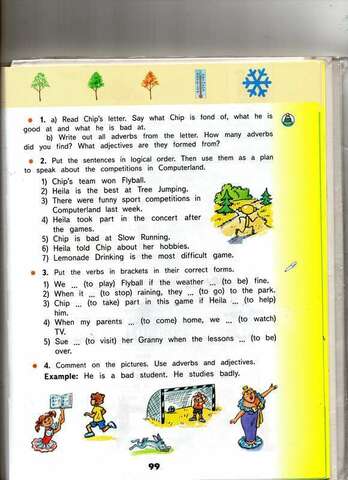 1. a) Read Chip's letter. Say what Chip is fond of, what he is
good at and what he is bad at.
b) Write out all adverbs from the letter. How many adverbs
did you find? What adjectives are they formed from?
2. Put the sentences in logical order. Then use them as a plan
to speak about the competitions in Computerland.
1) Chip's team won Flyball.
2) Heila is the best at Tree Jumping.
3) There were funny sport competitions in
Computerland last week.
4) Heila took part in the concert after
the games.
5) Chip is bad at Slow Running.
6) Heila told Chip about her hobbies.
7) Lemonade Drinking is the most difficult game.
3. Put the verbs in brackets in their correct forms.
1) We ... (to play) Flyball if the weather ... (to be) fine.
2) When it ... (to stop) raining, they ... (to go) to the park.
3) Chip ... (to take) part in this game if Heila ... (to help)
him.
4) When my parents ... (to come) home, we ... (to watch)
TV.
5) Sue ... (to visit) her Granny when the lessons ... (to be)
over.
4. Comment on the pictures. Use adverbs and adjectives.
Example: He is a bad student. He studies badly.
99